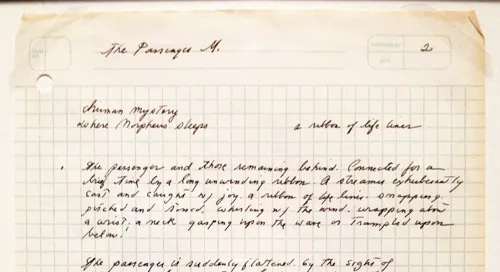 The Passenger M. 2
Human mystery
where Morpheus sleeps a ribbon of life lines
The passenger and those remaining behind. Connected for a
brief time by a long unwinding ribbon. A streamer exhuberantly
cast and caught w/ joy, a ribbon of life lines. snapping,
pitched and tossed, whirling w/ the wind. wrapping about
a wrist, a neck gasping upon the wave or trampled upon
below.
The passenger is suddenly flattened. by the sight of